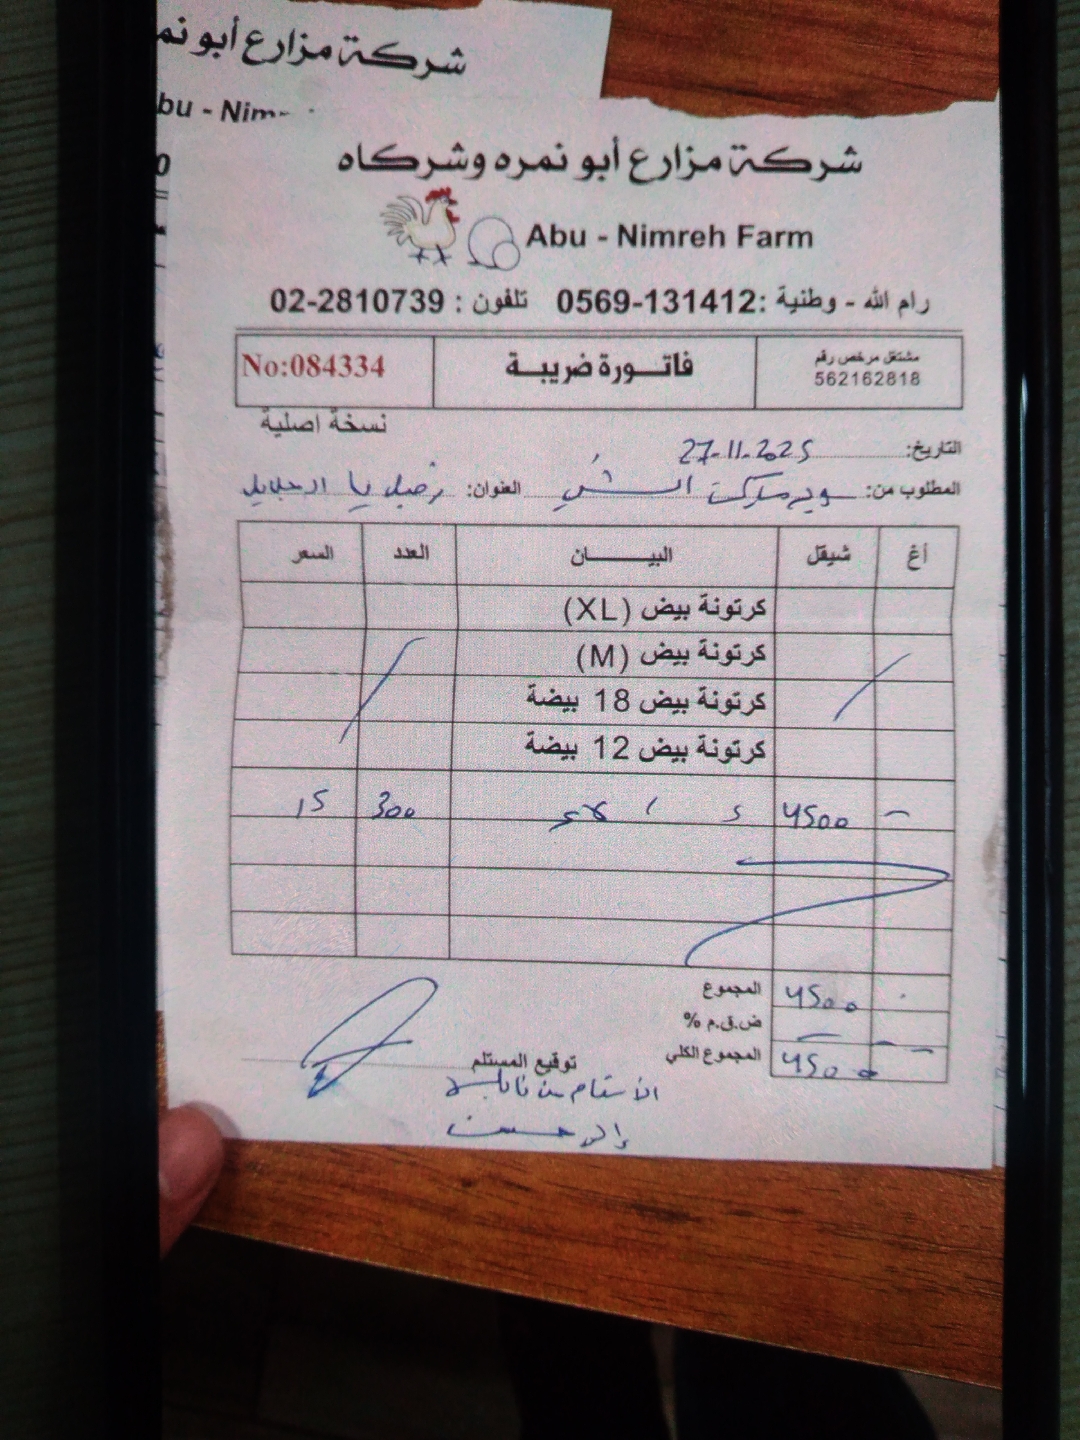 شركة مزارع أبو نم
bu - Nim
0
شركة مزارع أبو نمره وشركاه
Abu - Nimreh Farm
رام الله - وطنية :0569-131412 تلفون : 02-2810739
مشتغل مرخص رقم 562162818
فاتـورة ضريبـة
No:084334
نسخة اصلية
التاريخ: 27-11-2025
المطلوب من: سوبرماركت العنوان:
أغ شيقل البيـــان العدد السعر
كرتونة بيض (XL)
كرتونة بيض (M)
كرتونة بيض 18 بيضة
كرتونة بيض 12 بيضة
- 4500 300 15
المجموع 4500
ض.ق.م %
المجموع الكلي 4500
توقيع المستلم